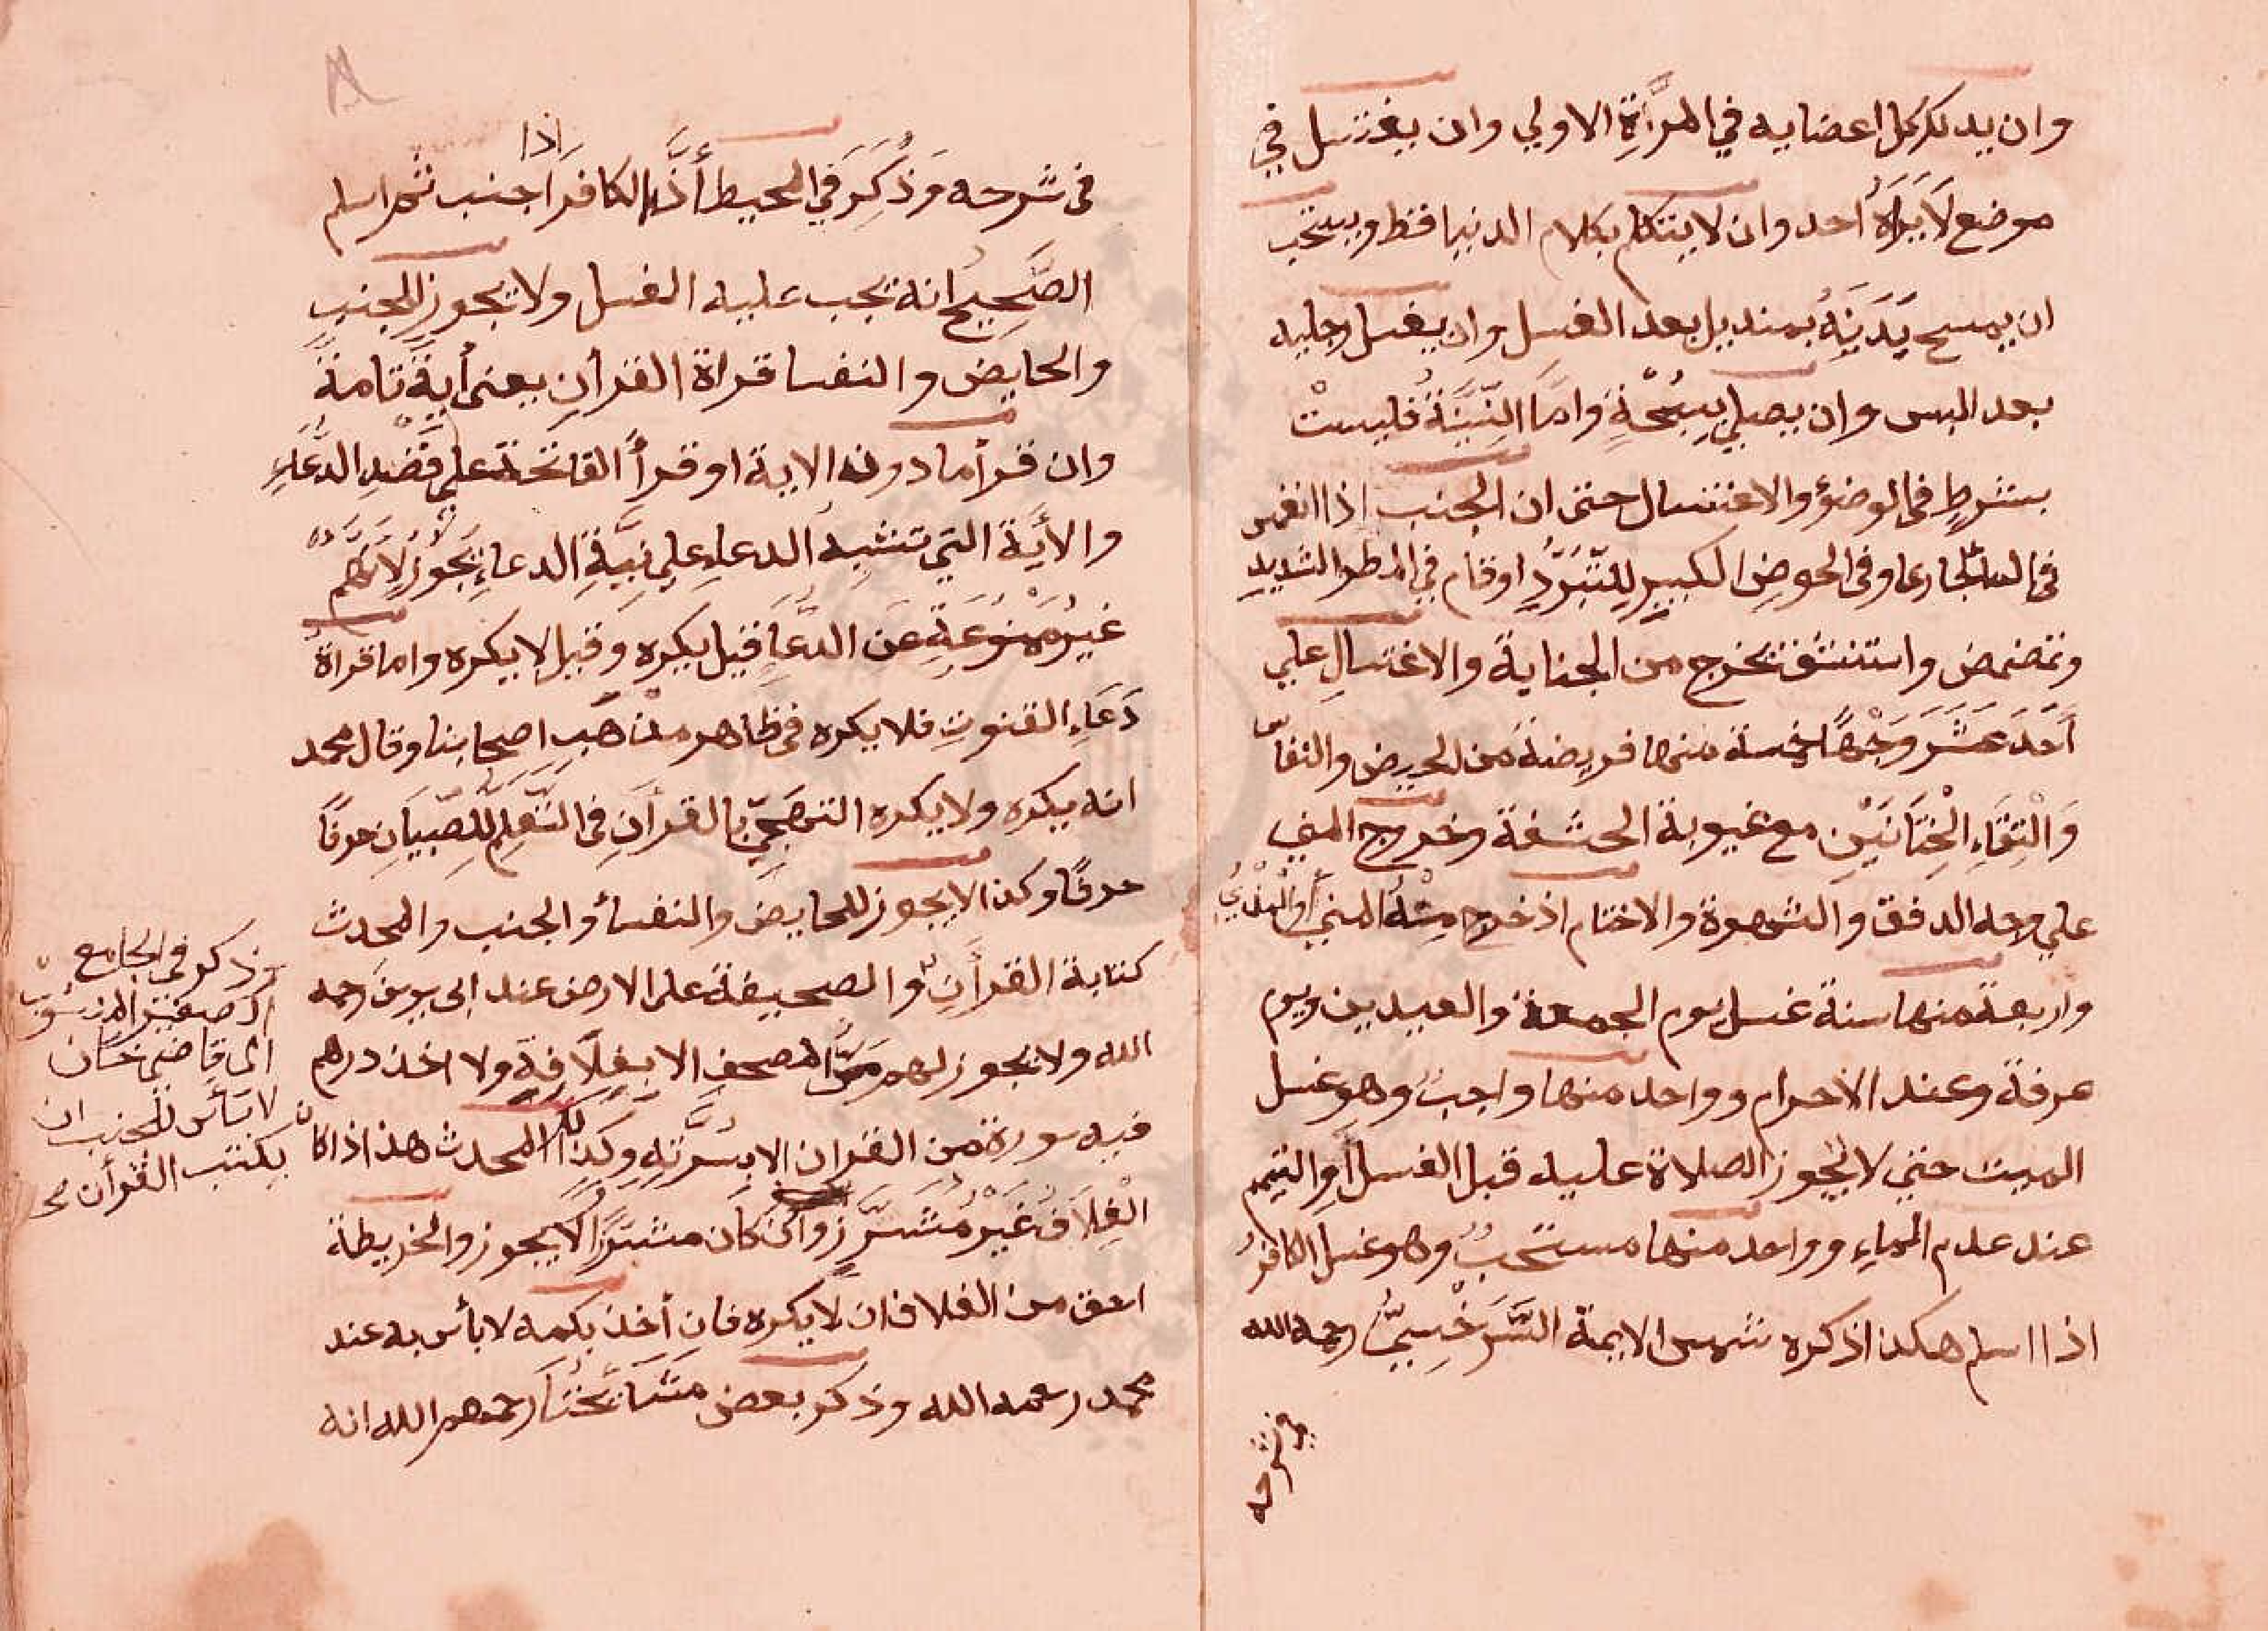 وان يدلك كل اعضايه في المرَّةِ الاولي وان يغتسل في
موضع لَا يَرَاهُ أحد وان لا يتكلم بكلام الدنيا قط ويستحب
ان يمسح بَدَنَهُ بمنديل بعد الغسل وان يغسل رجليه
بعد اللبس وان يصلي سُبْحَةٍ وامَّا النِّيَّةُ فليستْ
بشرطٍ في الوضوُء والاغتسال حتى ان الجنب اذا انغمس
في الماء الجاري او في الحوضِ الكبيرِ للتَّبَرُّدِ او قام في المطر الشديدِ
وتمضمض واستنشق يخرج من الجنابة والاغتسالِ علي
أَحَدَ عَشَرَ وَجْهًا خمسة منها فريضة مَن الحيض والنفاس
وَالْتِقَاءِ الْخِتَانَيْنِ مع غيوبة الحشفة وخروج المني
علي وجه الدفق والشهوة والاحتلام اذ خرج مِنْهُ المني أو المذيُ
واربعة منها سنة غسل يوم الجمعة والعيدين ويوم
عرفة وعند الاحرام وواحد منها واجبٌ وهو غسل
الميت حتي لا يجوز الصلاة عليه قبل الغسل أوِ التيمم
عند عدم الماءِ وواحد منها مستحبٌ وهو غسل الكافرُ
اذا اسلم هكذا ذكره شمس الايمة السَّرَخْسِيُّ رحمه الله
في شرحه
٨
في شرحه وَذُكِرَ في المحيط أنَّ الكافر اذا اجنب ثم اسلم
الصَّحِيحُ انه يجب عليه الغسل ولا يجوز للجنبِ
والحايض والنفسا قراة القرأنِ يعني أيةً تامةً
وان قرأ ما دون الاية او قرأ الفاتحة علي قَصْدِ الدُّعَاءِ
والأَيَة التي تشبه الدعاءِ علي نِيَّةِ الدعاءِ يَجُوزُ لأَنَّهُم
غيرُ مَمْنُوعَةٍ عَن الدُّعَاءِ قيل يكره وقيل لا يكره واما قراة
دَعَاءِ القنوتِ فلا يكره في ظاهر مذْهَبِ اصحابنا وقال محمد
انه يكره ولا يكره التهَجِّي بالقرأنِ في التَّعْلِيمِ لِلصِّبْيَانِ حرفًا
حرفًا وكذا لا يجوز للحايض والنفسأ والجنب والمحدث
كتابة القرأَنِ والصحيفة على الارض عند ابي يوسف رحمه
الله ولا يجوز لهم مَسُّ المصحفِ الا بِغِلَافِهِ ولا اخذ درهم
فيه سورة من القران الا بِصُرَّتِهِ وكذلك المحدث هذا اذا كان
الْغِلَافُ غَيْرَ مُشَرَّزٍ وان كان مشرَّزًا لا يجوز والخريطة
احق من الغلاف ان لا يكره فان أخذ بكمه لا بأس به عند
محمد رحمه الله وذكر بعض مشايخنا رحمهم الله انه
وذكر في الجامع
الصغير المنسوب
الى قاضي خان
لا بأس للجنب ان
يكتب القرأن صح